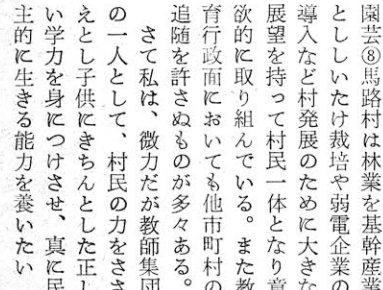 園芸⑧馬路村は林業を基幹産業
とししいたけ栽培や弱電企業の
導入など村発展のために大きな
展望を持って村民一体となり意
欲的に取り組んでいる。また教
育行政面においても他市町村の
追随を許さぬものが多々ある。
さて私は、微力だが教師集団
の一人として、村民の力をささ
えとし子供にきちんとした正し
い学力を身につけさせ、真に民
主的に生きる能力を養いたい